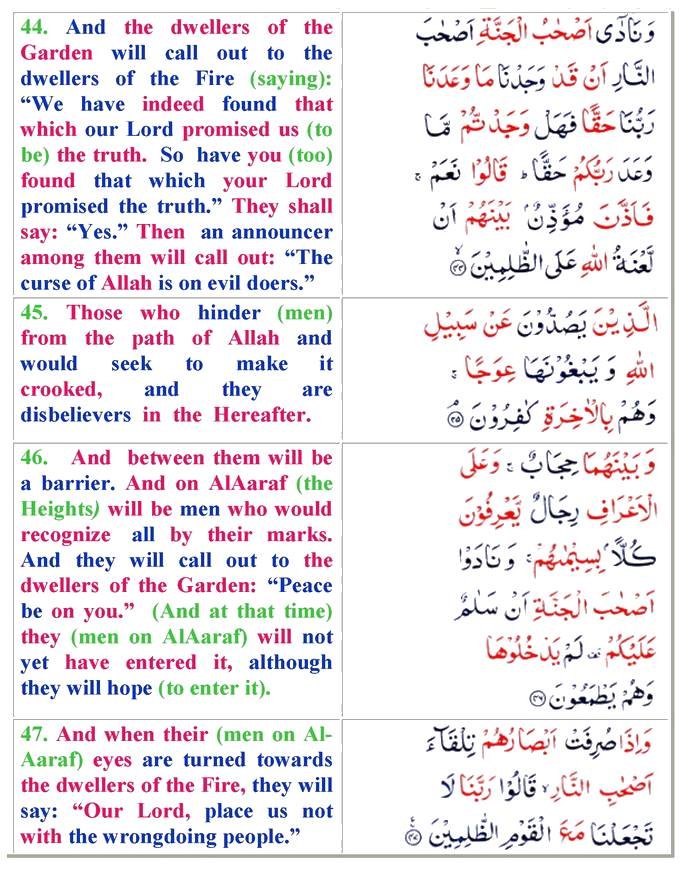 44. And the dwellers of the
Garden will call out to the
dwellers of the Fire (saying):
“We have indeed found that
which our Lord promised us (to
be) the truth. So have you (too)
found that which your Lord
promised the truth.” They shall
say: “Yes.” Then an announcer
among them will call out: “The
curse of Allah is on evil doers.”
وَنَادٰٓى اَصْحٰبُ الْجَنَّةِ اَصْحٰبَ
النَّارِ اَنْ قَدْ وَجَدْنَا مَا وَعَدَنَا
رَبُّنَا حَقًّا فَهَلْ وَجَدْتُّمْ مَّا
وَعَدَ رَبُّكُمْ حَقًّا ؕ قَالُوْا نَعَمْ ۚ
فَاَذَّنَ مُؤَذِّنٌۢ بَيْنَهُمْ اَنْ
لَّعْنَةُ اللّٰهِ عَلَى الظّٰلِمِيْنَ ۙ﴿۴۴﴾
45. Those who hinder (men)
from the path of Allah and
would seek to make it
crooked, and they are
disbelievers in the Hereafter.
الَّذِيْنَ يَصُدُّوْنَ عَنْ سَبِيْلِ
اللّٰهِ وَ يَبْغُوْنَهَا عِوَجًا ۚ
وَهُمْ بِالْاٰخِرَةِ كٰفِرُوْنَ ۘ﴿۴۵﴾
46. And between them will be
a barrier. And on AlAaraf (the
Heights) will be men who would
recognize all by their marks.
And they will call out to the
dwellers of the Garden: “Peace
be on you.” (And at that time)
they (men on AlAaraf) will not
yet have entered it, although
they will hope (to enter it).
وَ بَيْنَهُمَا حِجَابٌ ۚ وَعَلَى
الْاَعْرَافِ رِجَالٌ يَّعْرِفُوْنَ
كُلًّاۢ بِسِيْمٰىهُمْ ۚ وَ نَادَوْا
اَصْحٰبَ الْجَنَّةِ اَنْ سَلٰمٌ
عَلَيْكُمْ ۟ لَمْ يَدْخُلُوْهَا
وَهُمْ يَطْمَعُوْنَ ﴿۴۶﴾
47. And when their (men on Al-
Aaraf) eyes are turned towards
the dwellers of the Fire, they will
say: “Our Lord, place us not
with the wrongdoing people.”
وَاِذَا صُرِفَتْ اَبْصَارُهُمْ تِلْقَآءَ
اَصْحٰبِ النَّارِ ۙ قَالُوْا رَبَّنَا لَا
تَجْعَلْنَا مَعَ الْقَوْمِ الظّٰلِمِيْنَ ﴿۴۷﴾